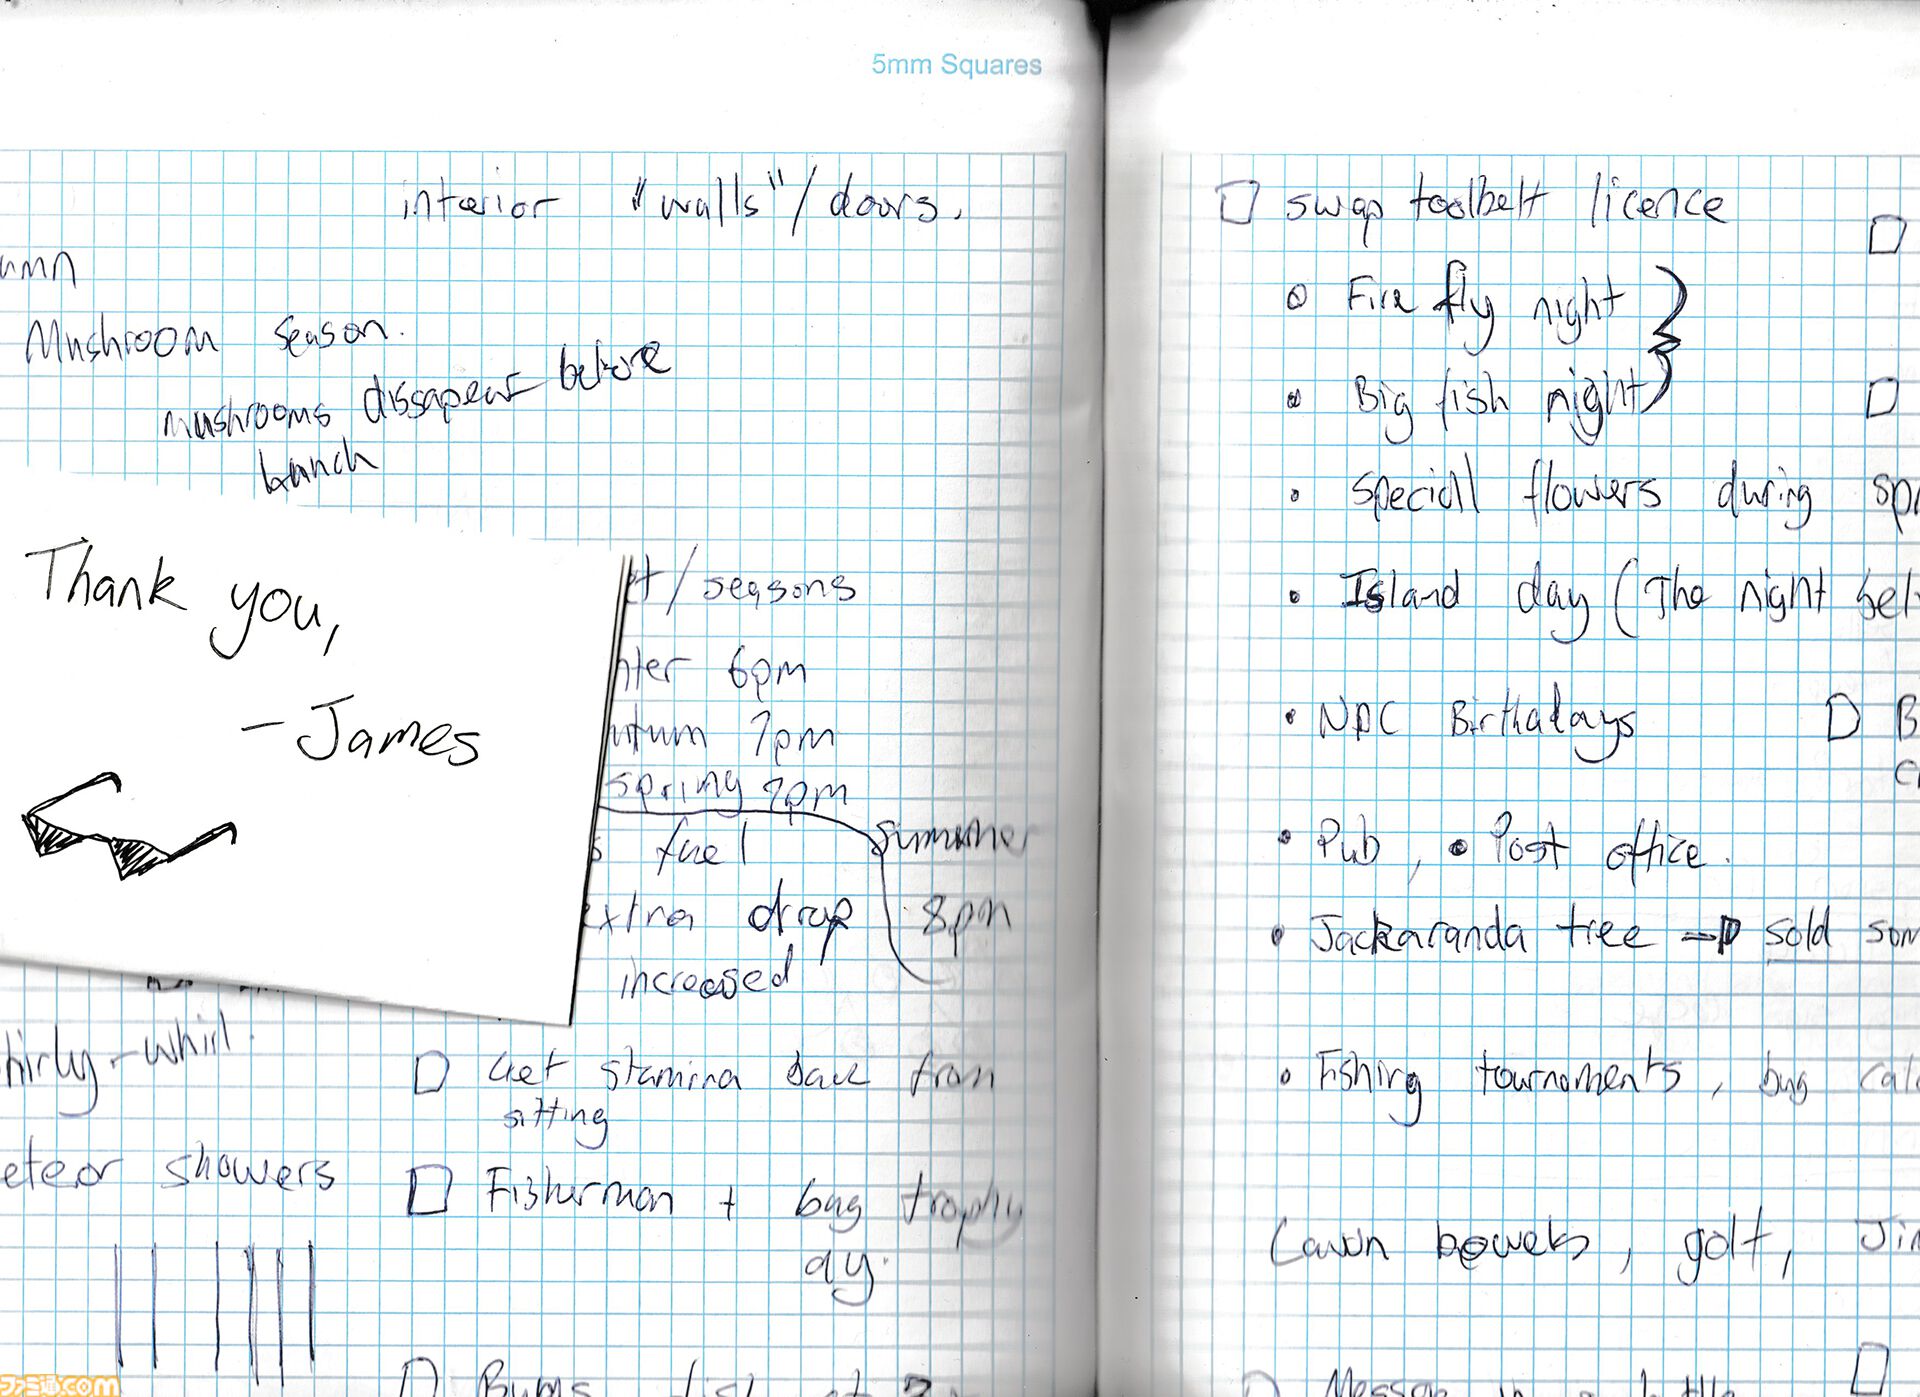 5mm Squares
interior "walls"/doors.
umn
Mushroom season.
mushrooms dissapear before
Thank you,
- James
et/seasons
nter 6pm
utum 7pm
spring 7pm
s fuel
summer
extra drop
8pm
increased
hirly-whirl.
Get stamina back from
sitting
eteor showers
Fisherman + bug trophy
ay.
swap toolbelt licence
• Fire fly night
• Big fish night
• speciall flowers during spr
• Island day (The night bef
• NPC Birthadays
B
• Pub, • Post office.
• Jackaranda tree → sold som
• Fishing tournoments, bug
Lawn bowels, golf,
Message in a bottle
ファミ通.com